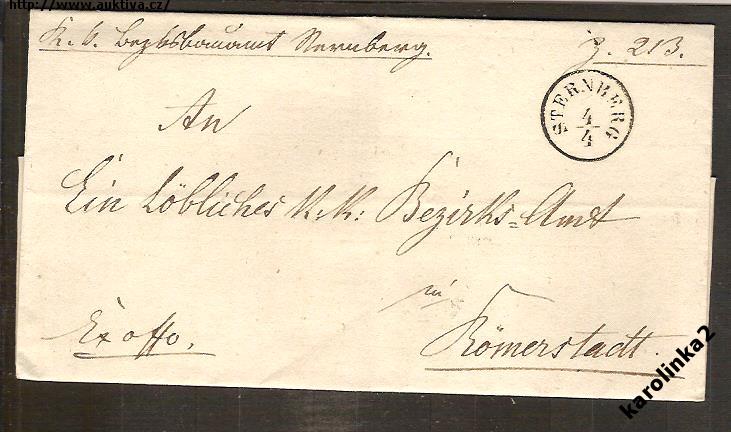 http://www.auktiva.cz/
K. k. Bezksbauamt Sternberg.
Z. 213.
STERNBERG
4/4
An
Ein Löbliches K. K. Bezirks=Amt
in
Ex offo.
Römerstadt.
karolinka2